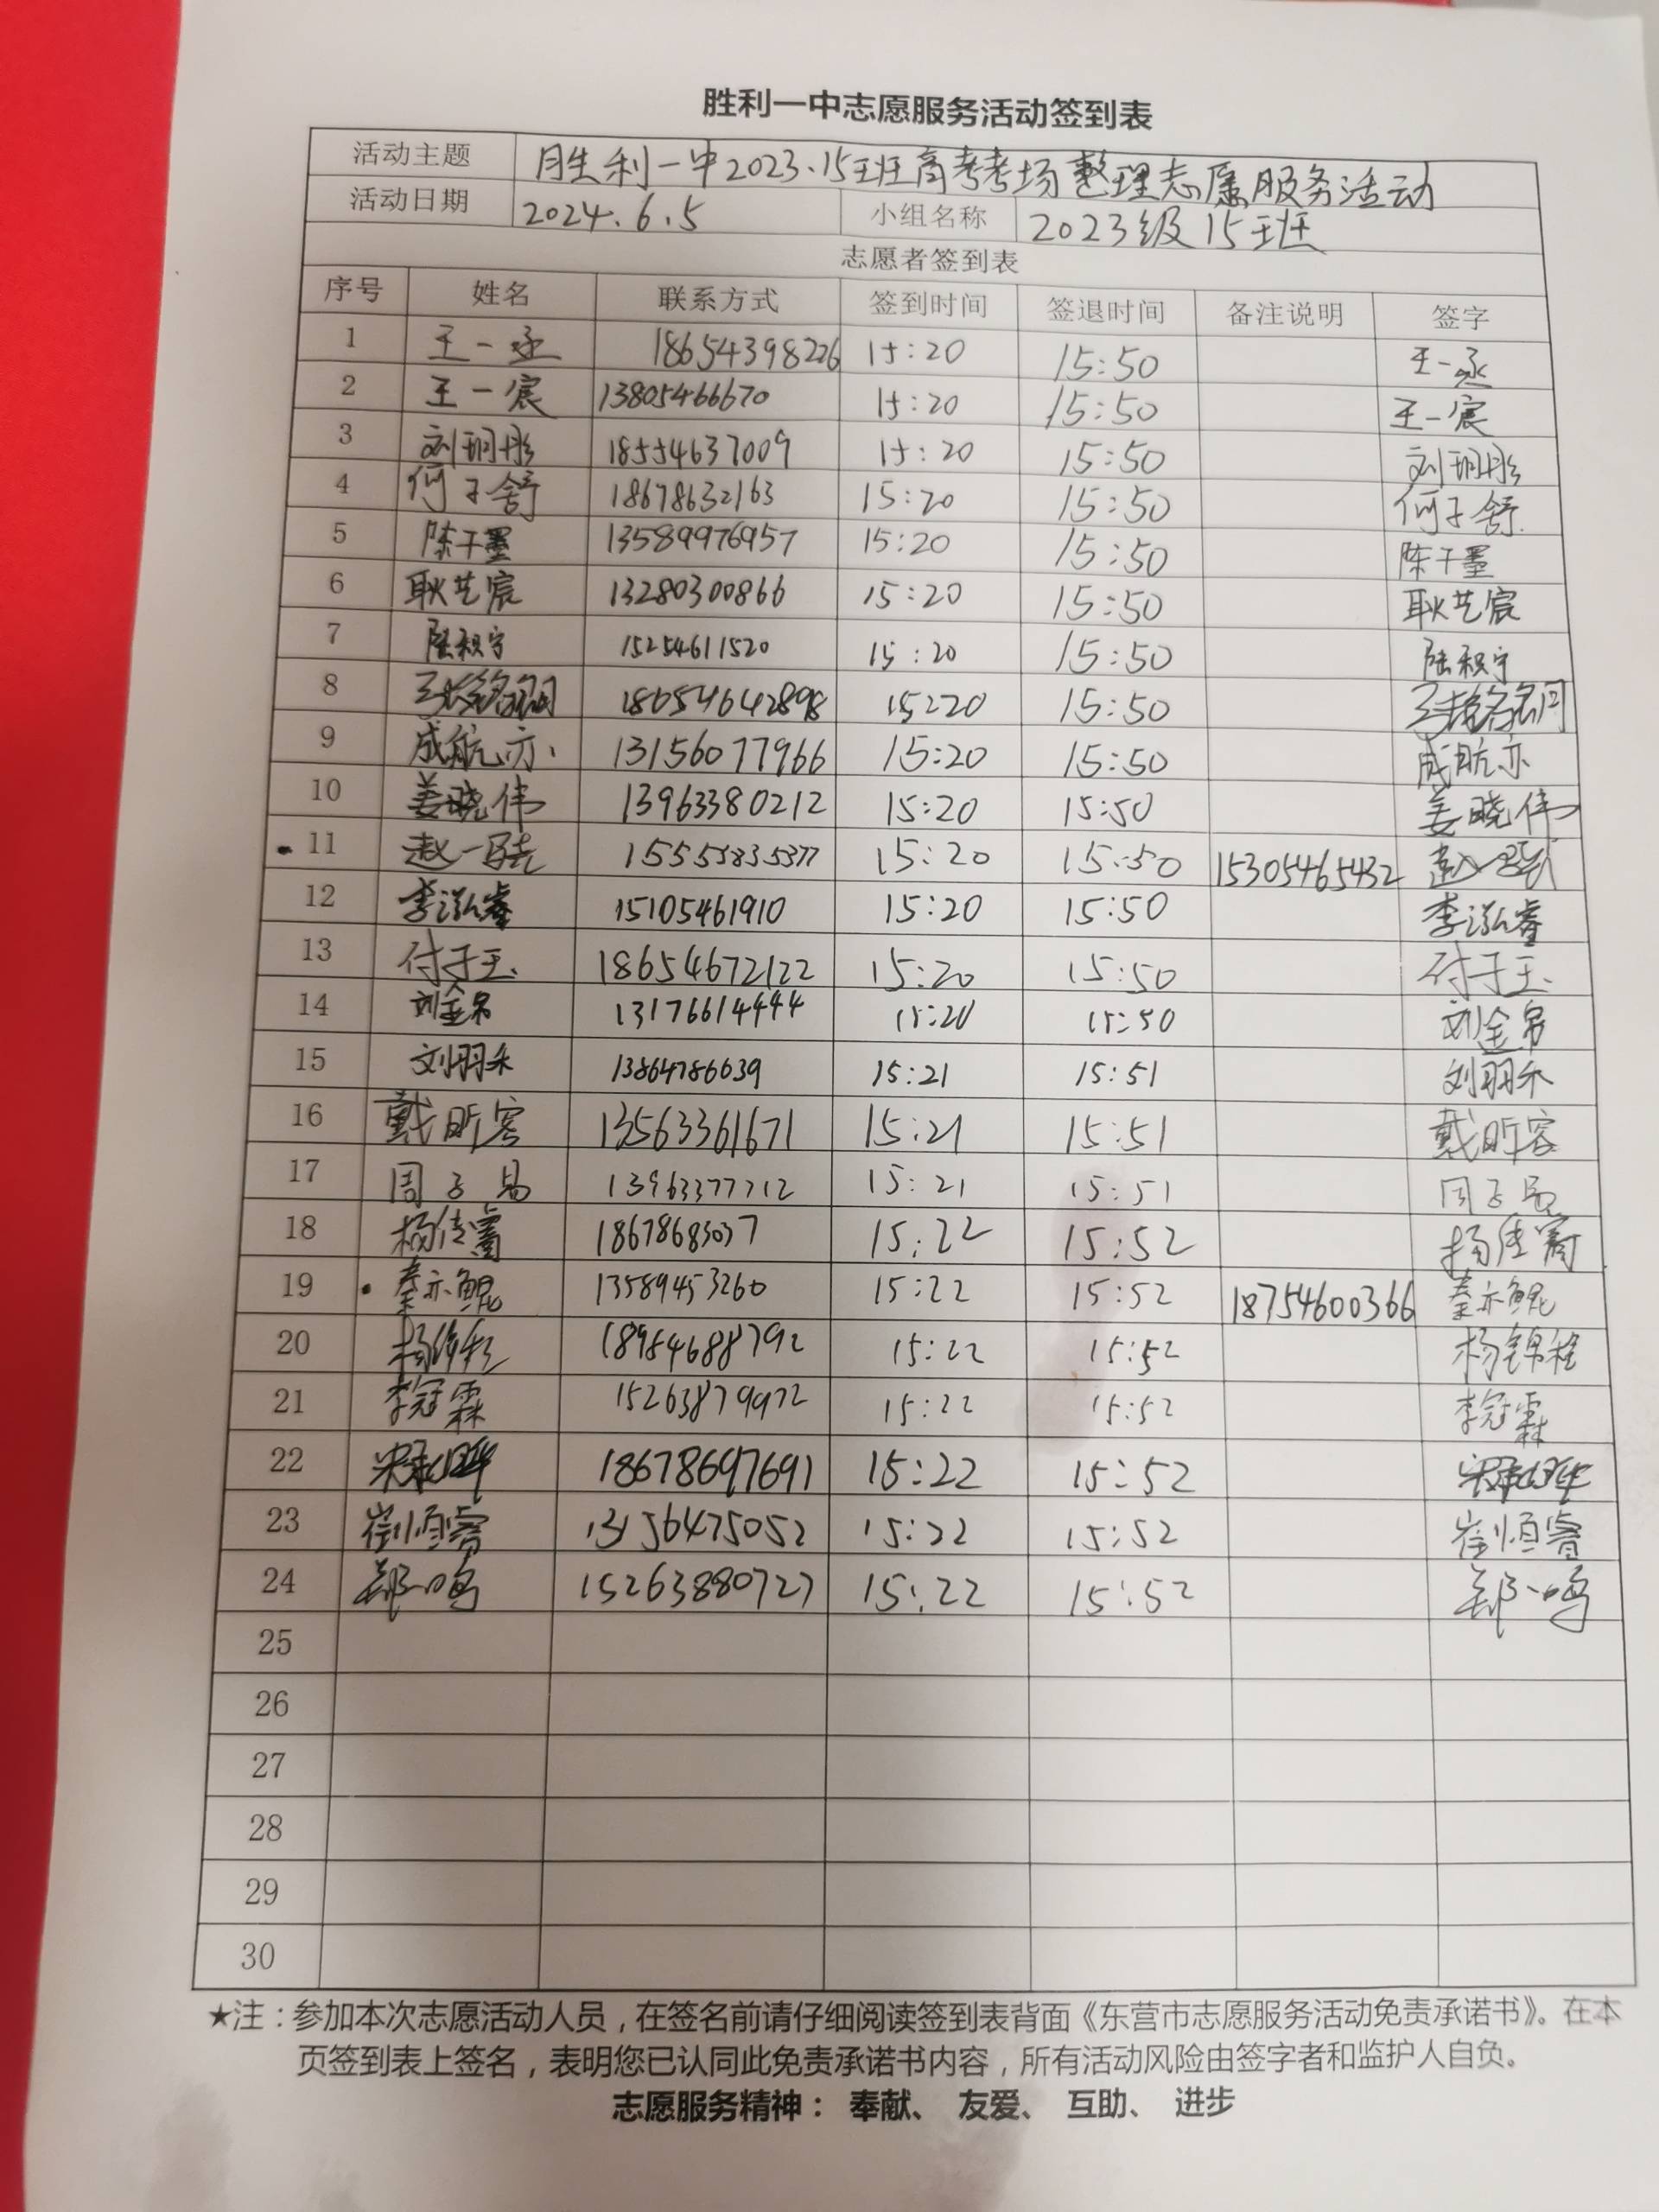 胜利一中志愿服务活动签到表
活动主题 胜利一中2023.15班高考考场整理志愿服务活动
活动日期 2024.6.5 小组名称 2023级15班
志愿者签到表
序号 姓名 联系方式 签到时间 签退时间 备注说明 签字
1 王一丞 18654398226 15:20 15:50 王一丞
2 王一宸 13805466670 15:20 15:50 王一宸
3 刘玥彤 18554637009 15:20 15:50 刘玥彤
4 何子舒 18678632163 15:20 15:50 何子舒
5 陈千墨 13589976957 15:20 15:50 陈千墨
6 耿艺宸 13280300866 15:20 15:50 耿艺宸
7 陆积宇 15254611520 15:20 15:50 陆积宇
8 18654642898 15:20 15:50
9 成航亦 13156077966 15:20 15:50 成航亦
10 姜晓伟 13963380212 15:20 15:50 姜晓伟
11 赵一骁 15555835377 15:20 15:50 15305465432 赵一骁
12 李泓睿 15105461910 15:20 15:50 李泓睿
13 付于玉 18654672122 15:20 15:50 付于玉
14 刘金帛 13176614444 15:20 15:50 刘金帛
15 刘羽禾 13864786639 15:21 15:51 刘羽禾
16 戴昕容 13563361671 15:21 15:51 戴昕容
17 周子易 13963377712 15:21 15:51 周子易
18 杨佳 18678683037 15:22 15:52 杨佳
19 秦亦鲲 13589453260 15:22 15:52 18754600366 秦亦鲲
20 杨锦程 18954688792 15:22 15:52 杨锦程
21 李冠霖 15263879972 15:22 15:52 李冠霖
22 18678697691 15:22 15:52
23 崔恒睿 13156475052 15:22 15:52 崔恒睿
24 郑一鸣 15263880727 15:22 15:52 郑一鸣
25
26
27
28
29
30
★注：参加本次志愿活动人员，在签名前请仔细阅读签到表背面《东营市志愿服务活动免责承诺书》。在本
页签到表上签名，表明您已认同此免责承诺书内容，所有活动风险由签字者和监护人自负。
志愿服务精神： 奉献、 友爱、 互助、 进步